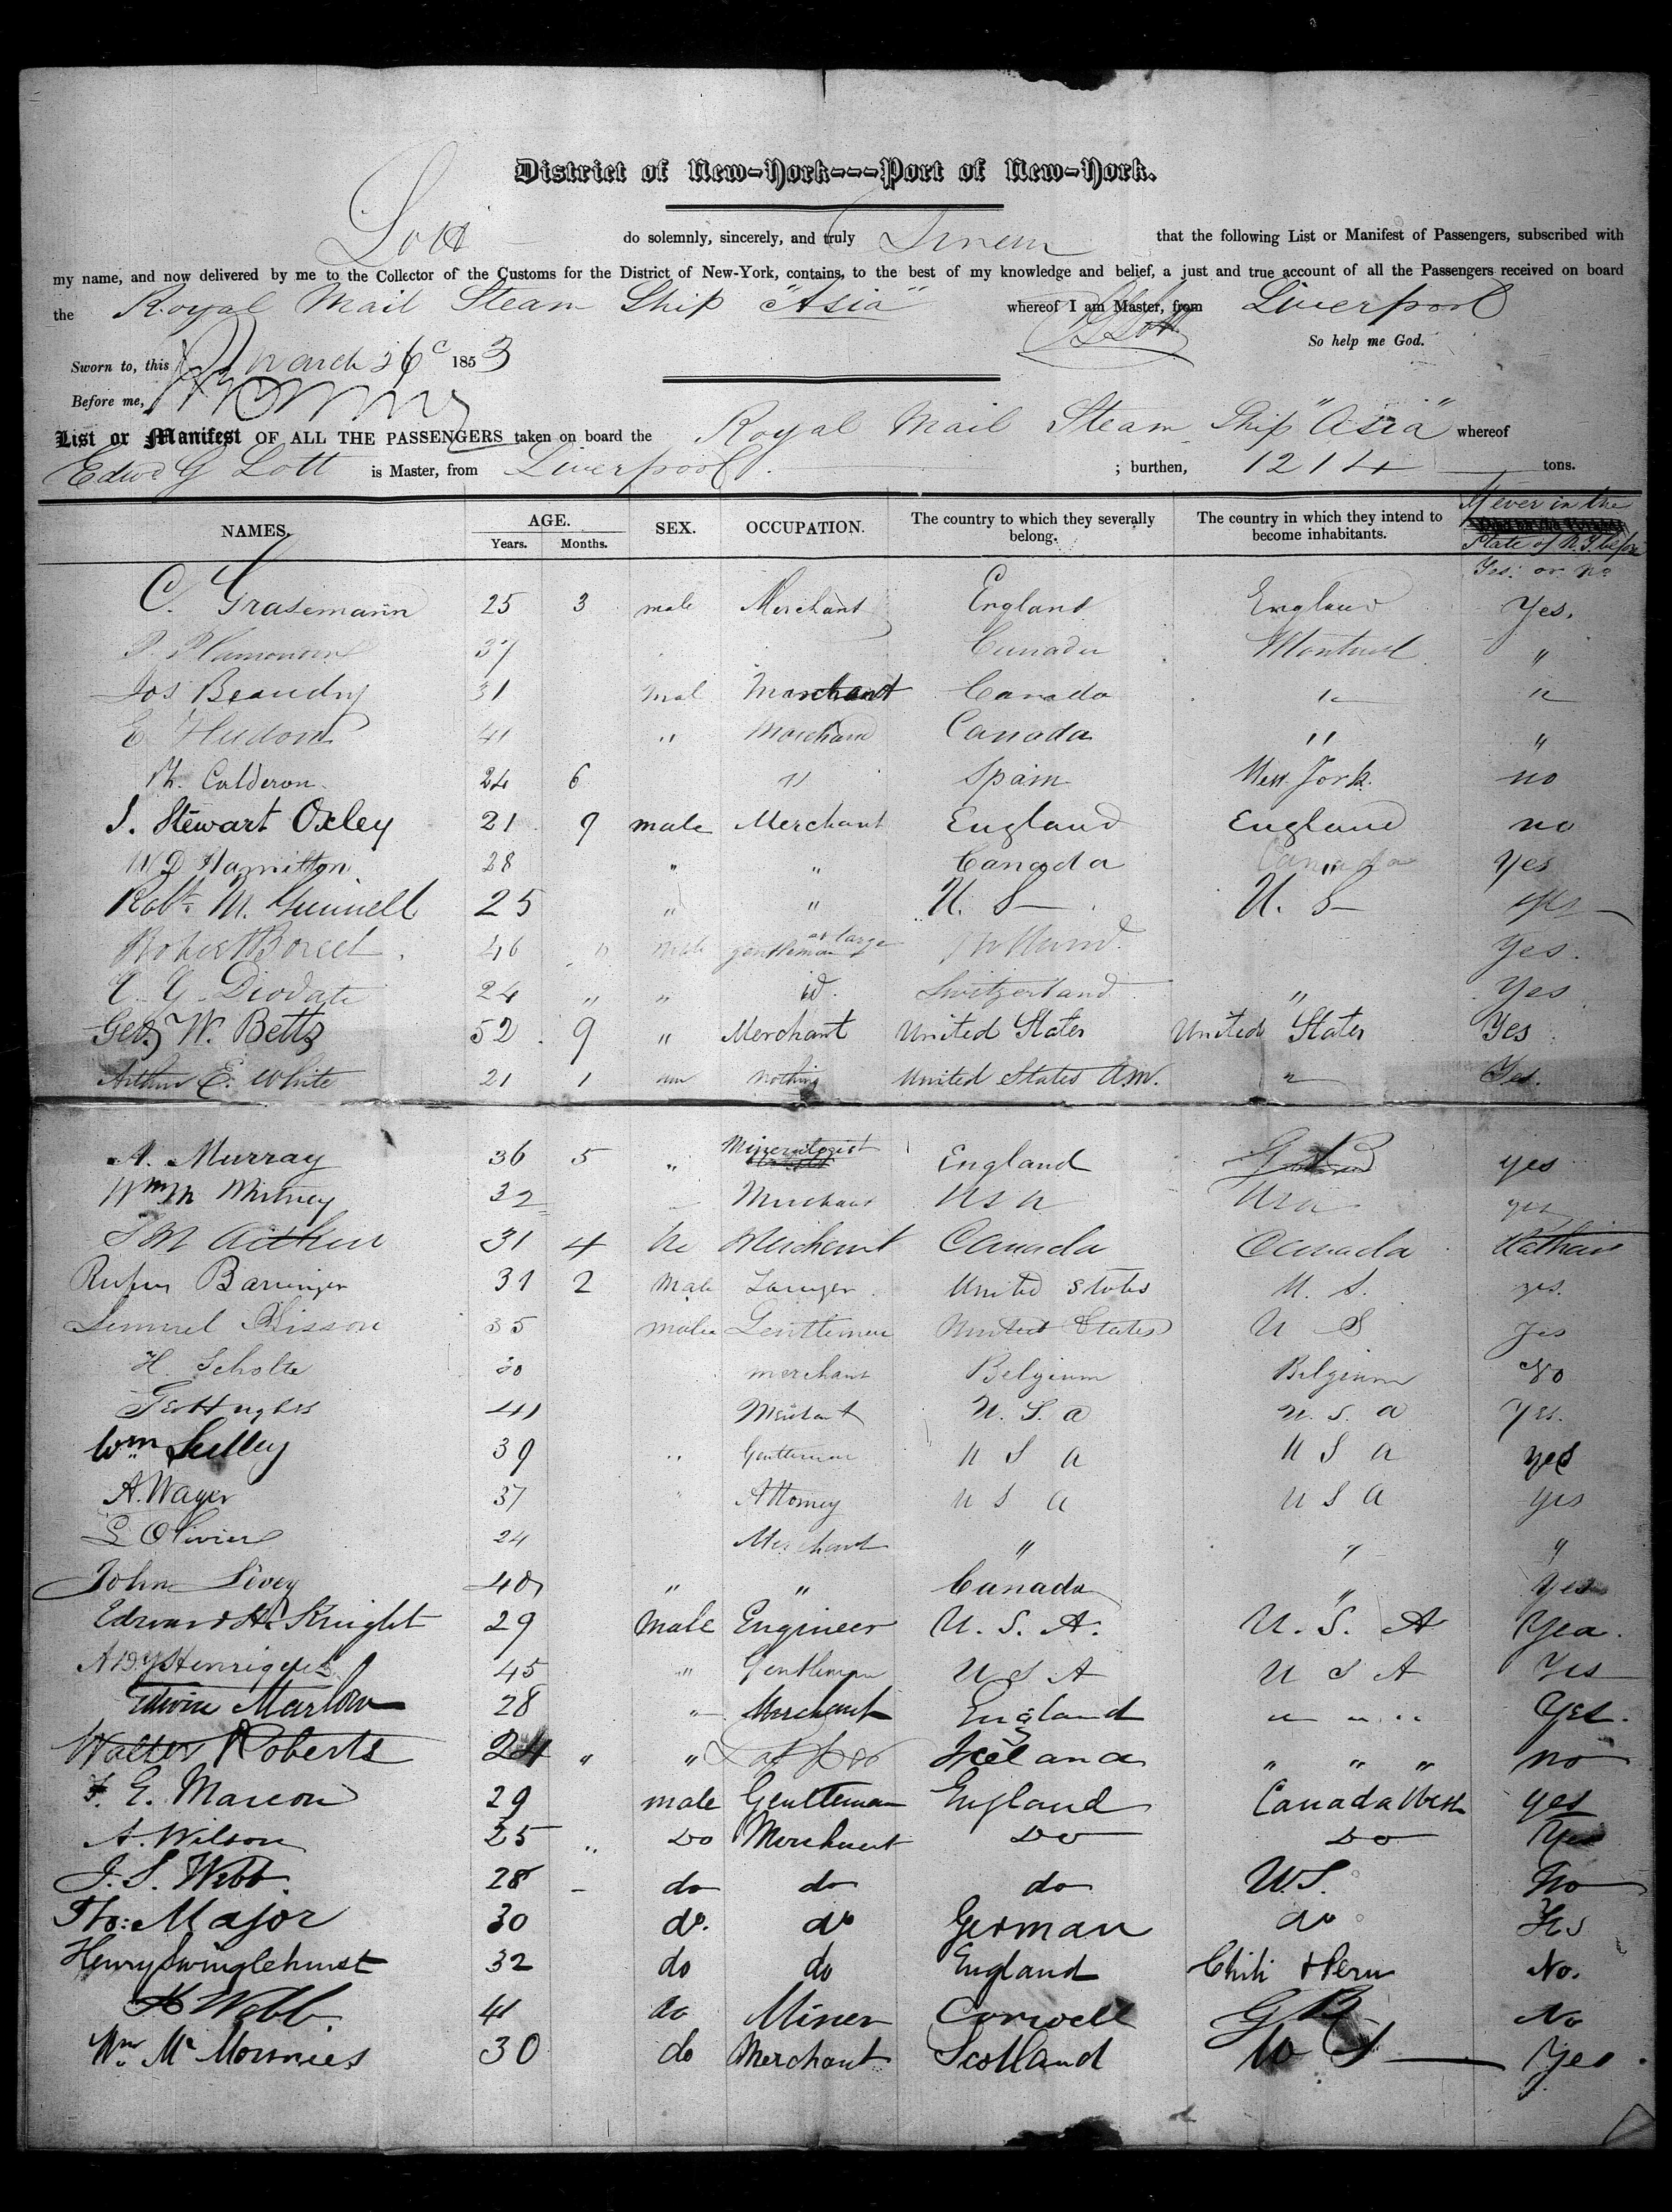 District of New-York---Port of New-York.
Lott do solemnly, sincerely, and truly Swear that the following List or Manifest of Passengers, subscribed with
my name, and now delivered by me to the Collector of the Customs for the District of New-York, contains, to the best of my knowledge and belief, a just and true account of all the Passengers received on board
the Royal Mail Steam Ship "Asia" whereof I am Master, from Liverpool
So help me God.
Sworn to, this March 26 1853
Before me,
List or Manifest OF ALL THE PASSENGERS taken on board the Royal Mail Steam Ship "Asia" whereof
Edwd G Lott is Master, from Liverpool ; burthen, 1214 tons.
NAMES. AGE. Years. Months. SEX. OCCUPATION. The country to which they severally belong. The country in which they intend to become inhabitants. If ever in the State of N.Y. before Yes or No
C. Grasemann 25 3 male Merchant England England Yes.
37 Canada Montreal "
Jos Beaudry 31 Mal Marchant Canada " "
E Hudon 41 " Marchand Canada " "
Calderon 24 6 " Spain New York no
J. Stewart Oxley 21 9 male Merchant England England no
W D Hamilton 28 " " Canada Canada Yes
Robt. M. Gunnell 25 " " U. S U. S yes
Robert 46 " male gentleman at large Yes.
Diodati 24 " " id. Switzerland " Yes
Geo. W. Betts 52 9 " Merchant United States United States Yes
Arthur E. White 21 1 nothing United States Am. " Yes.
A. Murray 36 5 " Mineralogist England G B yes
Wm Whitney 32 Merchant USA USA yes
Aitken 31 4 Merchant Canada Canada
Rufus Barringer 31 2 Male Lawyer United States U. S. yes.
Lemuel 35 male Gentleman United States U S Yes
H. Scholte 30 merchant Belgium Belgium No
Geo Hughes 41 Merchant U. S. A U. S. A Yes.
Wm Selley 39 " Gentleman U S A U S A yes
A. Wager 37 " Attorney U S A U S A yes
Olivier 24 Merchant " " "
John Levey 40 " " Canada " Yes
Edward H. Knight 29 Male Engineer U. S. A. U. S. A Yea.
Henriques 45 " Gentleman U S A U S A Yes
Edwin Marlow 28 " Merchant England " " " Yes.
Walter Roberts 24 " " Ireland " " " no
F. E. Marcon 29 male Gentleman England Canada West yes
A. Wilson 25 " Do Merchant Do Do Yes
J. S. Webb. 28 - do do do U.S. No
Tho: Major 30 do. do German do Yes
Henry Swinglehurst 32 do do England Chili & Peru No.
Webb. 41 do Miner Cornwell G B No
Wm. Mc 30 do Merchant Scotland Yes.